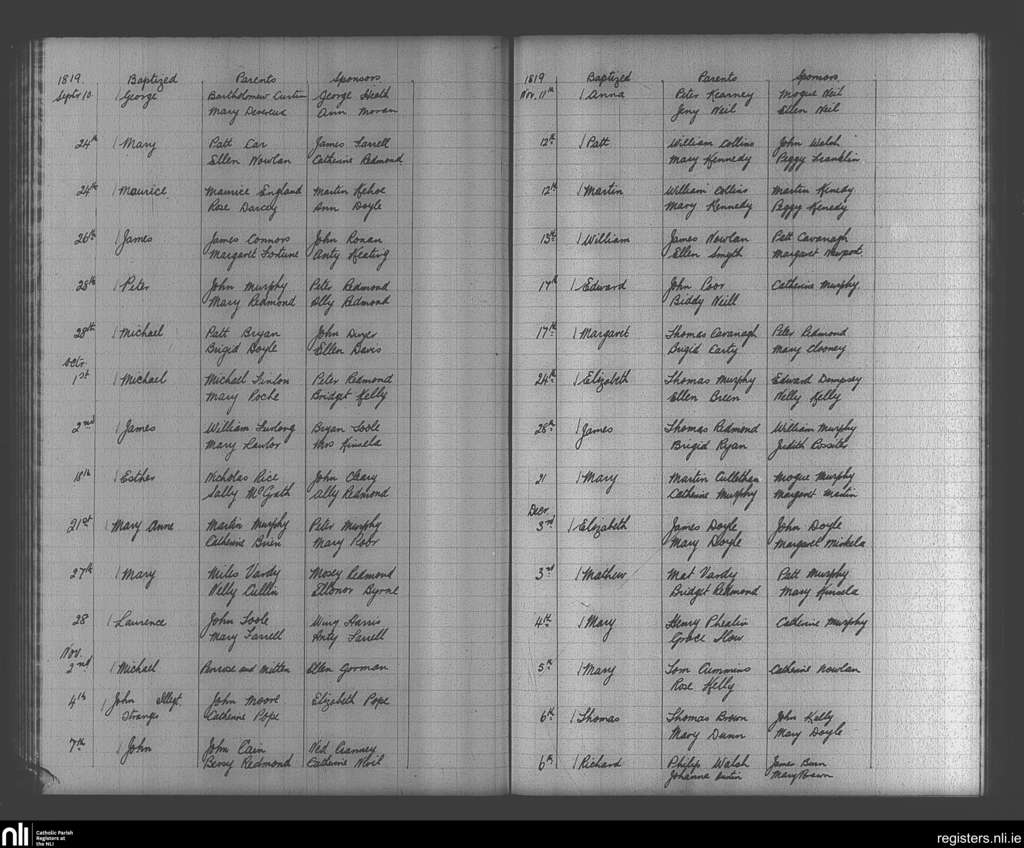 1819. Baptized Parents Sponsors
Septr 10 George Bartholomew Curtin George Heath
Mary Devereux Ann Moran
24th Mary Patt Car James Farrell
Ellen Nowlan Catherine Redmond
24th Maurice Maurice England Martin Kehoe
Rose Darcey Ann Doyle
26th James James Connors John Ronan
Margaret Fortune Anty Keating
28th Peter John Murphy Peter Redmond
Mary Redmond Ally Redmond
28th Michael Patt Bryan John Diner
Brigid Doyle Ellen Davis
Octr
1st Michael Michael Finlon Peter Redmond
Mary Roche Bridget Kelly
2nd James William Furlong Bryan Toole
Mary Lawlor Mrs Kinsela
18th Esther Nicholas Rice John Cleary
Sally McGrath Ally Redmond
21st Mary Anne Martin Murphy Peter Murphy
Catherine Brien Mary Poor
27th Mary Miles Vardy Mosey Redmond
Nelly Cullin Ellonor Byrne
28 Laurence John Toole Winy Harris
Mary Farrell Anty Farrell
Nov.
2nd Michael Penrose and Mitten Ellen Gorman
4th John Illegt. John Moore Elizabeth Pope
Strange Catherine Pope
7th John John Cain Ned Cranney
Bessy Redmond Catherine Neil
1819 Baptized Parents Sponsors
Nov. 11th Anna Peter Kearney Mogue Neil
Jeny Neil Ellen Neil
12th Patt William Collins John Walsh
Mary Kennedy Peggy Franklin
12th Martin William Collins Martin Kenedy
Mary Kennedy Peggy Kenedy
13th William James Nowlan Patt Cavanagh
Ellen Smyth Margaret Newport
17th Edward John Poor Catherine Murphy
Biddy Neill
17th Margaret Thomas Cavanagh Peter Redmond
Brigid Carty Mary Clooney
24th Elizabeth Thomas Murphy Edward Dempsey
Ellen Breen Nelly Kelly
28th James Thomas Redmond William Murphy
Brigid Ryan Judith Rossiter
21 Mary Martin Cullethan Mogue Murphy
Catherine Murphy Margaret Martin
Decr
3rd Elizabeth James Doyle John Doyle
Mary Doyle Margaret Minkela
3rd Mathew Mat Vardy Patt Murphy
Bridget Redmond Mary Kinsela
4th Mary Henry Phealin Catherine Murphy
Grace Slow
5th Mary Tom Cummins Catherine Nowlan
Rose Kelly
6th Thomas Thomas Brown John Kelly
Mary Dunn Mary Doyle
6th Richard Philip Walsh James Bunn
Johanna Austin Mary Brown
nli Catholic Parish
Registers at
the NLI
registers.nli.ie